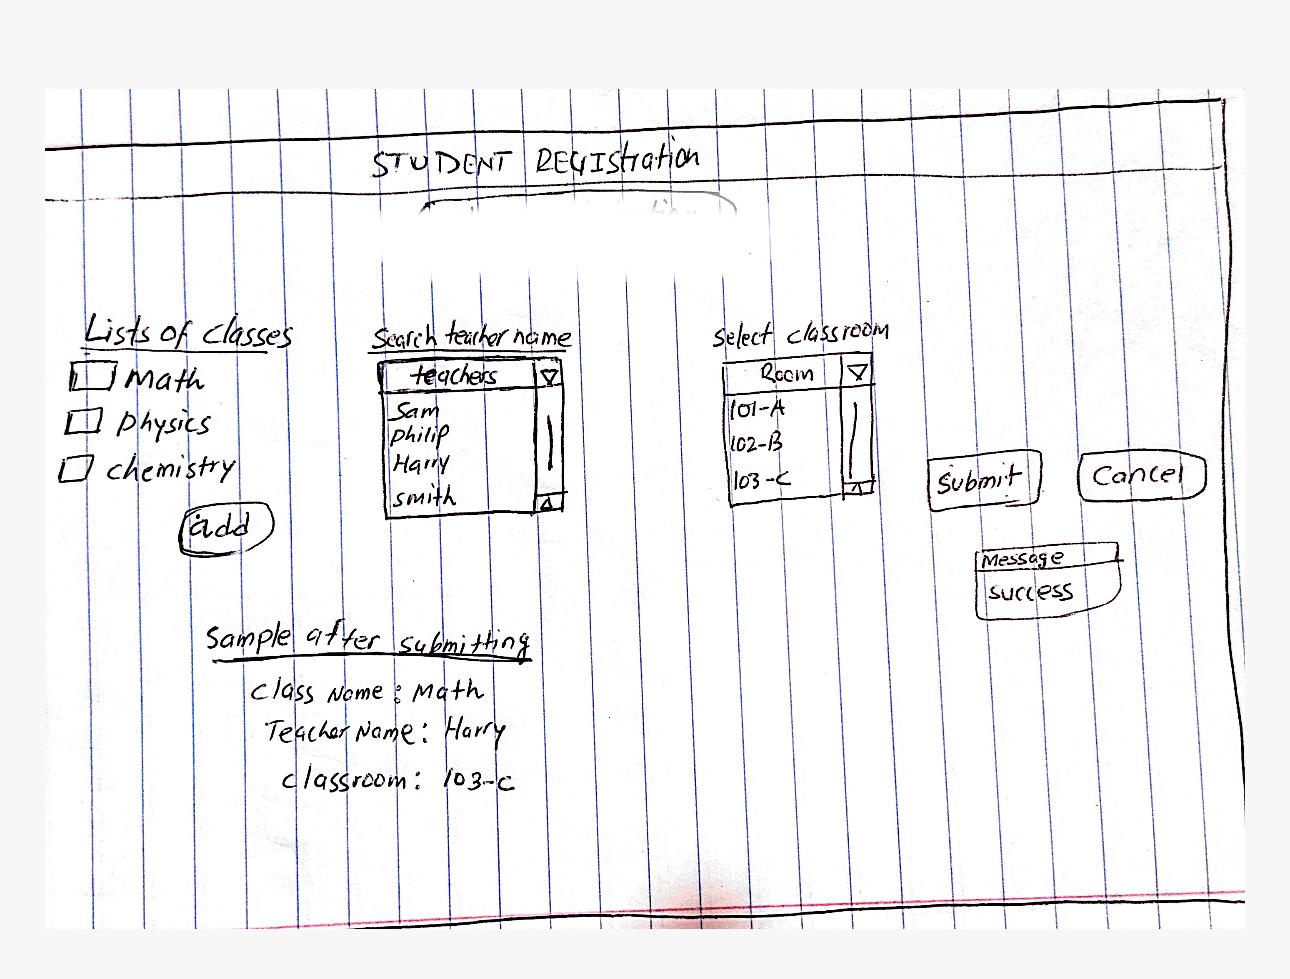 STUDENT REGIstration
Lists of classes
Math
Physics
chemistry
add
Search teacher name
teachers
Sam
Philip
Harry
smith
Select classroom
Room
101-A
102-B
103-C
Submit
Cancel
Message
success
Sample after submitting
Class Name: Math
Teacher Name: Harry
Classroom: 103-C